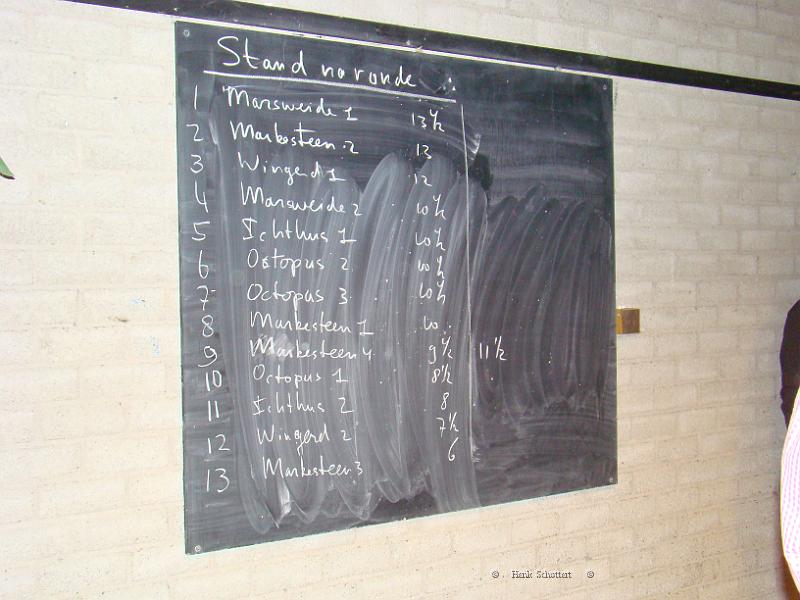 Stand na ronde :
1 Marsweide 1 13 1/2
2 Markesteen 2 13
3 Wingerd 1 12
4 Marsweide 2 10 1/2
5 Ichthus 1 10 1/2
6 Octopus 2 10 1/2
7 Octopus 3 10 1/2
8 Markesteen 1 10
9 Markesteen 4 9 1/2 11 1/2
10 Octopus 1 8 1/2
11 Ichthus 2 8
12 Wingerd 2 7 1/2
13 Markesteen 3 6
© Henk Schottert ©